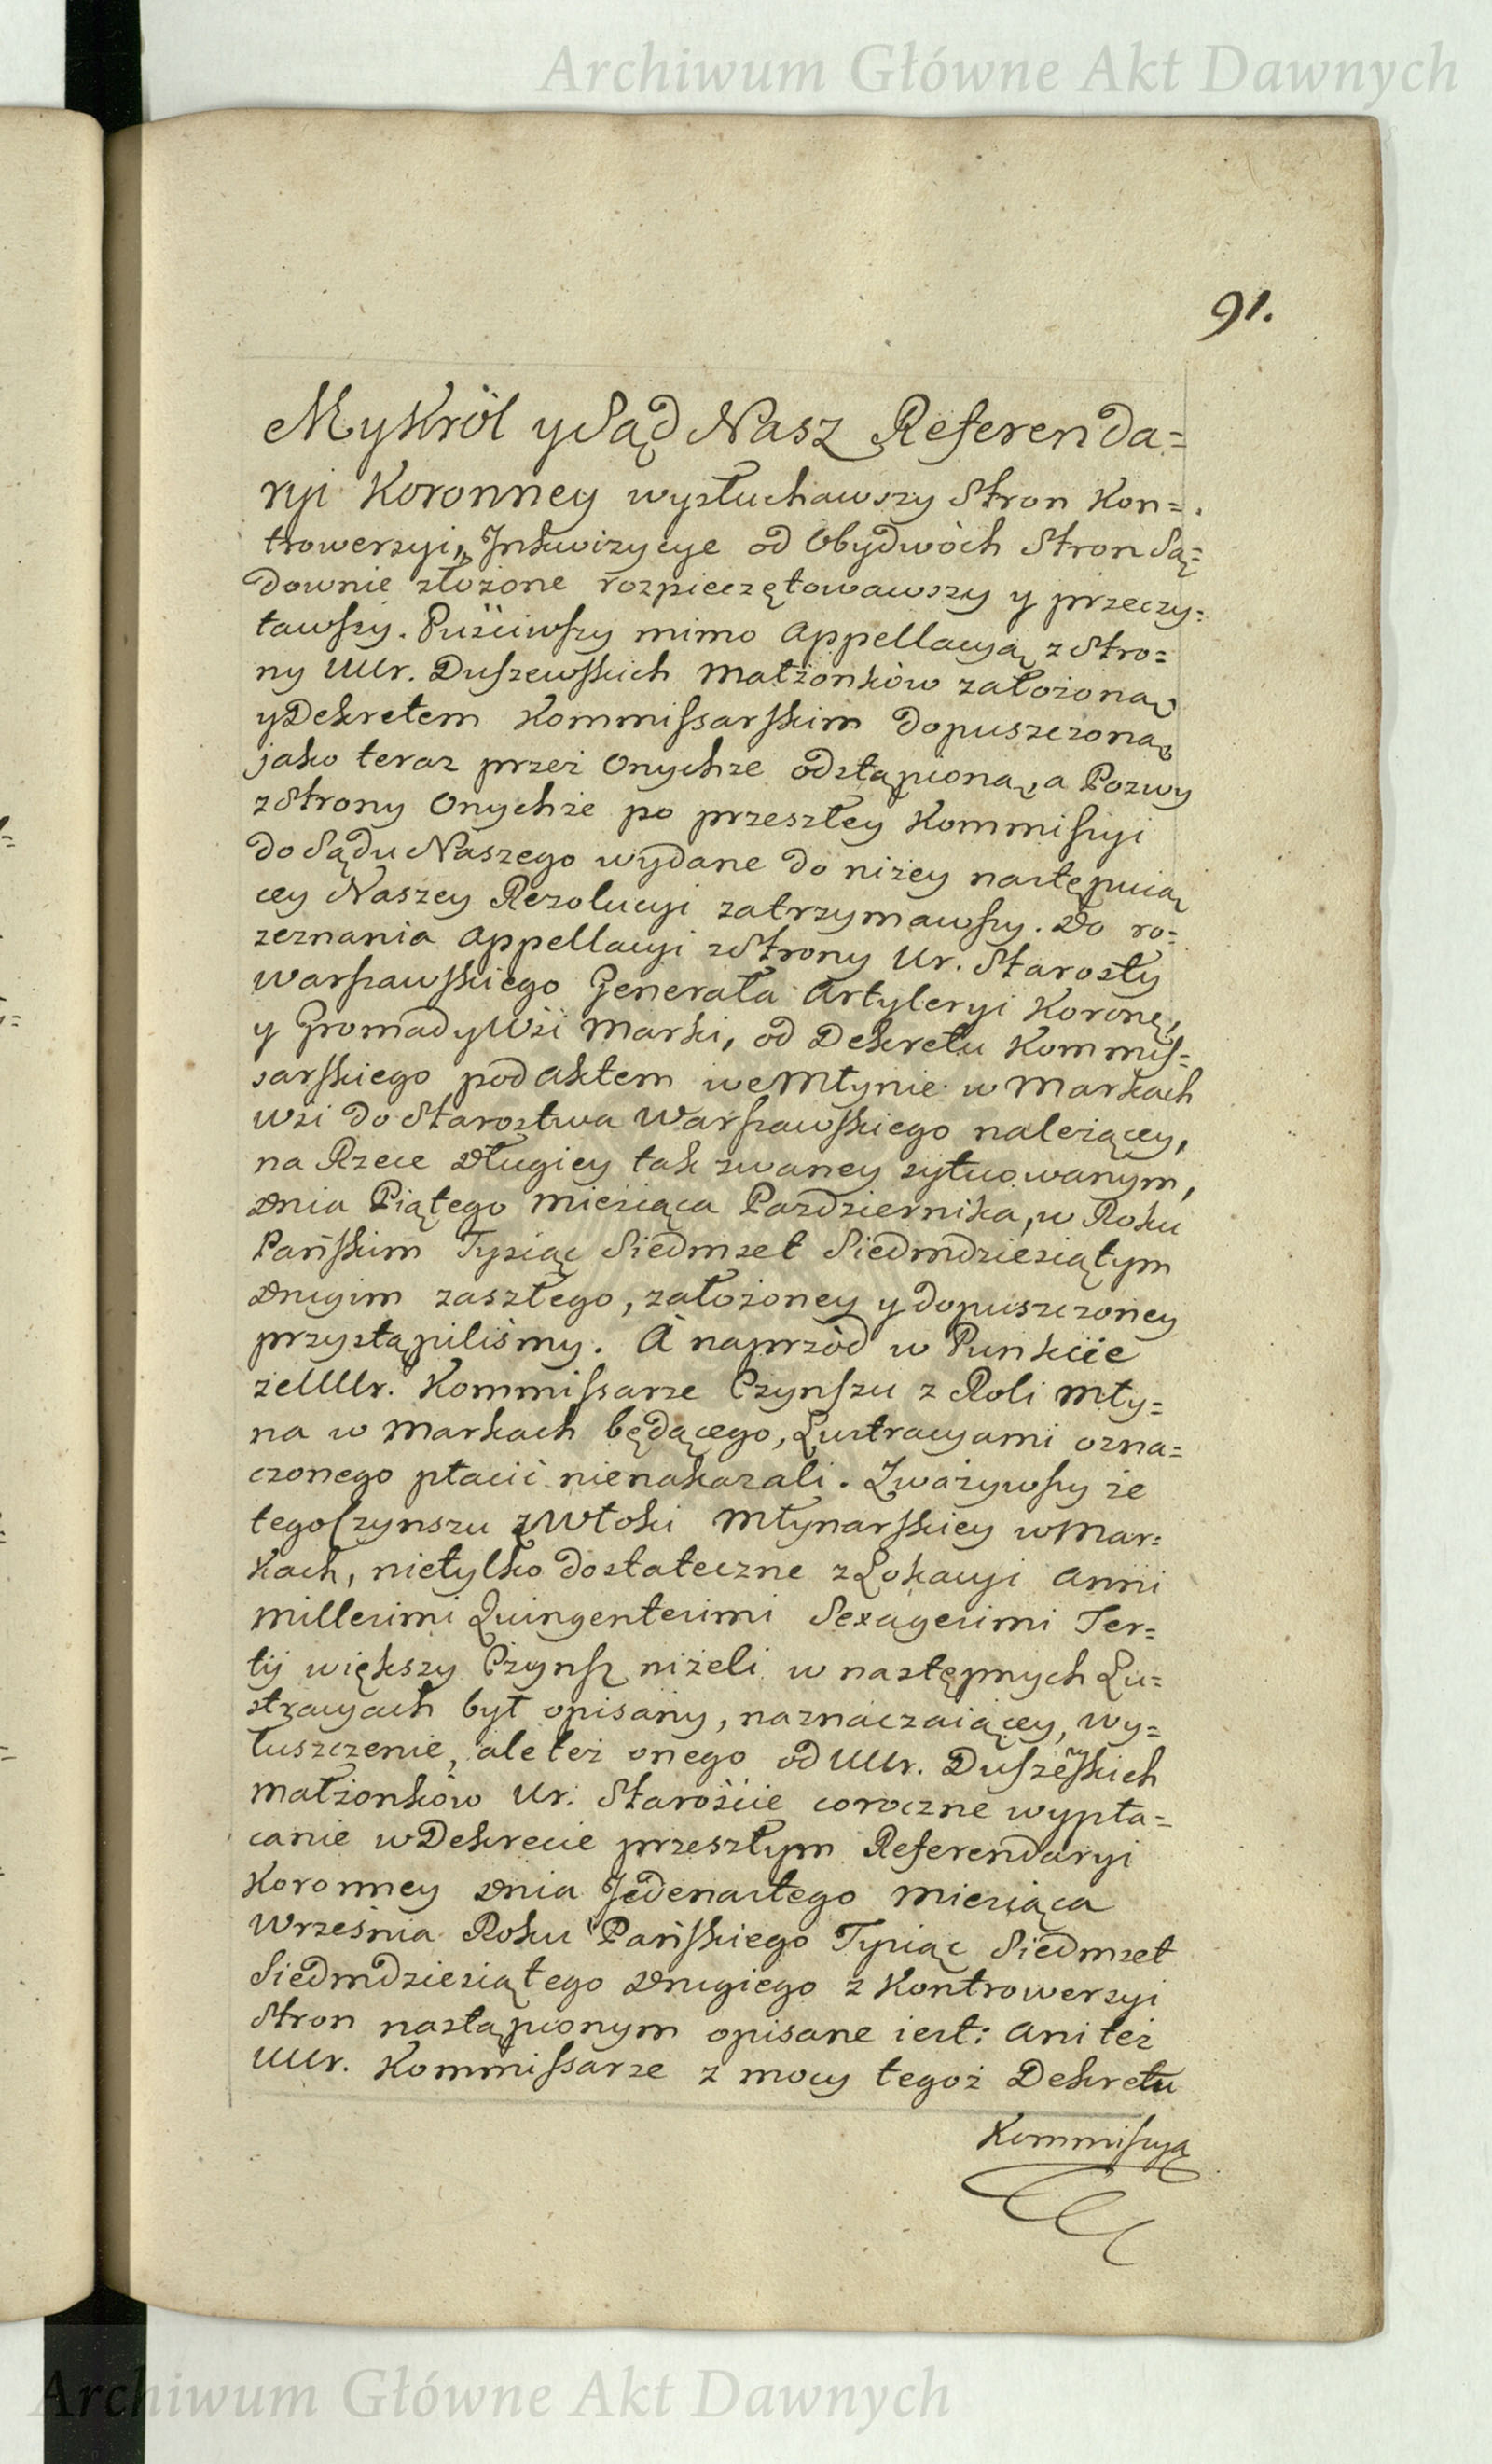 Archiwum Główne Akt Dawnych
91.
My Król y Sąd Nasz Referenda=
ryi Koronney wysłuchawszy Stron Kon=
trowersyi, Inkwizycye od Obydwóch Stron Są=
downie złożone rozpieczętowawszy y przeczy=
tawszy. Puściwszy mimo Appellacyą z Stro=
ny UUr. Duszewskich Małżonków założoną
y Dekretem Kommissarskim dopuszczoną
jako teraz przez Onychże odstąpioną, a Pozwy
z Strony Onychże po przeszłey Kommissyi
do Sądu Naszego wydane do niżey następuią
cey Naszey Rezolucyi zatrzymawszy. Do ro=
zeznania Appellacyi z Strony Ur. Starosty
Warszawskiego Generała Artyleryi Koronę,
y Gromady Wsi Marki, od Dekretu Kommis=
sarskiego pod Aktem we Młynie w Markach
wsi do Starostwa Warszawskiego należącey,
na Rzece Długiey tak zwaney sytuowanym,
Dnia Piątego Miesiąca Pazdziernika, w Roku
Pańskim Tysiąc Siedmset Siedmdziesiątym
Drugim zaszłego, założoney y dopuszczoney
przystąpiliśmy. A naprzód w Punkcie
że UUr. Kommissarze Czynszu z Roli Mły=
na w Markach będącego, Lustracyami ozna=
czonego płacić nienakazali. Zważywszy że
tego Czynszu z Włoki Młynarskiey w Mar=
kach, nietylko dostateczne z Lokacyi Anni
Millesimi Quingentesimi Sexagesimi Ter=
tij większy Czynsz niżeli w następnych Lu=
stracyach był opisany, naznaczaiącey, wy=
łuszczenie, ale też onego od UUr. Duszewskich
Małżonków Ur. Starościе coroczne wypła=
canie w Dekrecie przeszłym Referendaryi
Koronney Dnia Jedenastego Miesiąca
Września Roku Pańskiego Tysiąc Siedmset
Siedmdziesiątego Drugiego z Kontrowersyi
Stron nastąpionym opisane iest: Ani też
UUr. Kommissarze z mocy tegoż Dekretu
Kommissyą
Archiwum Główne Akt Dawnych